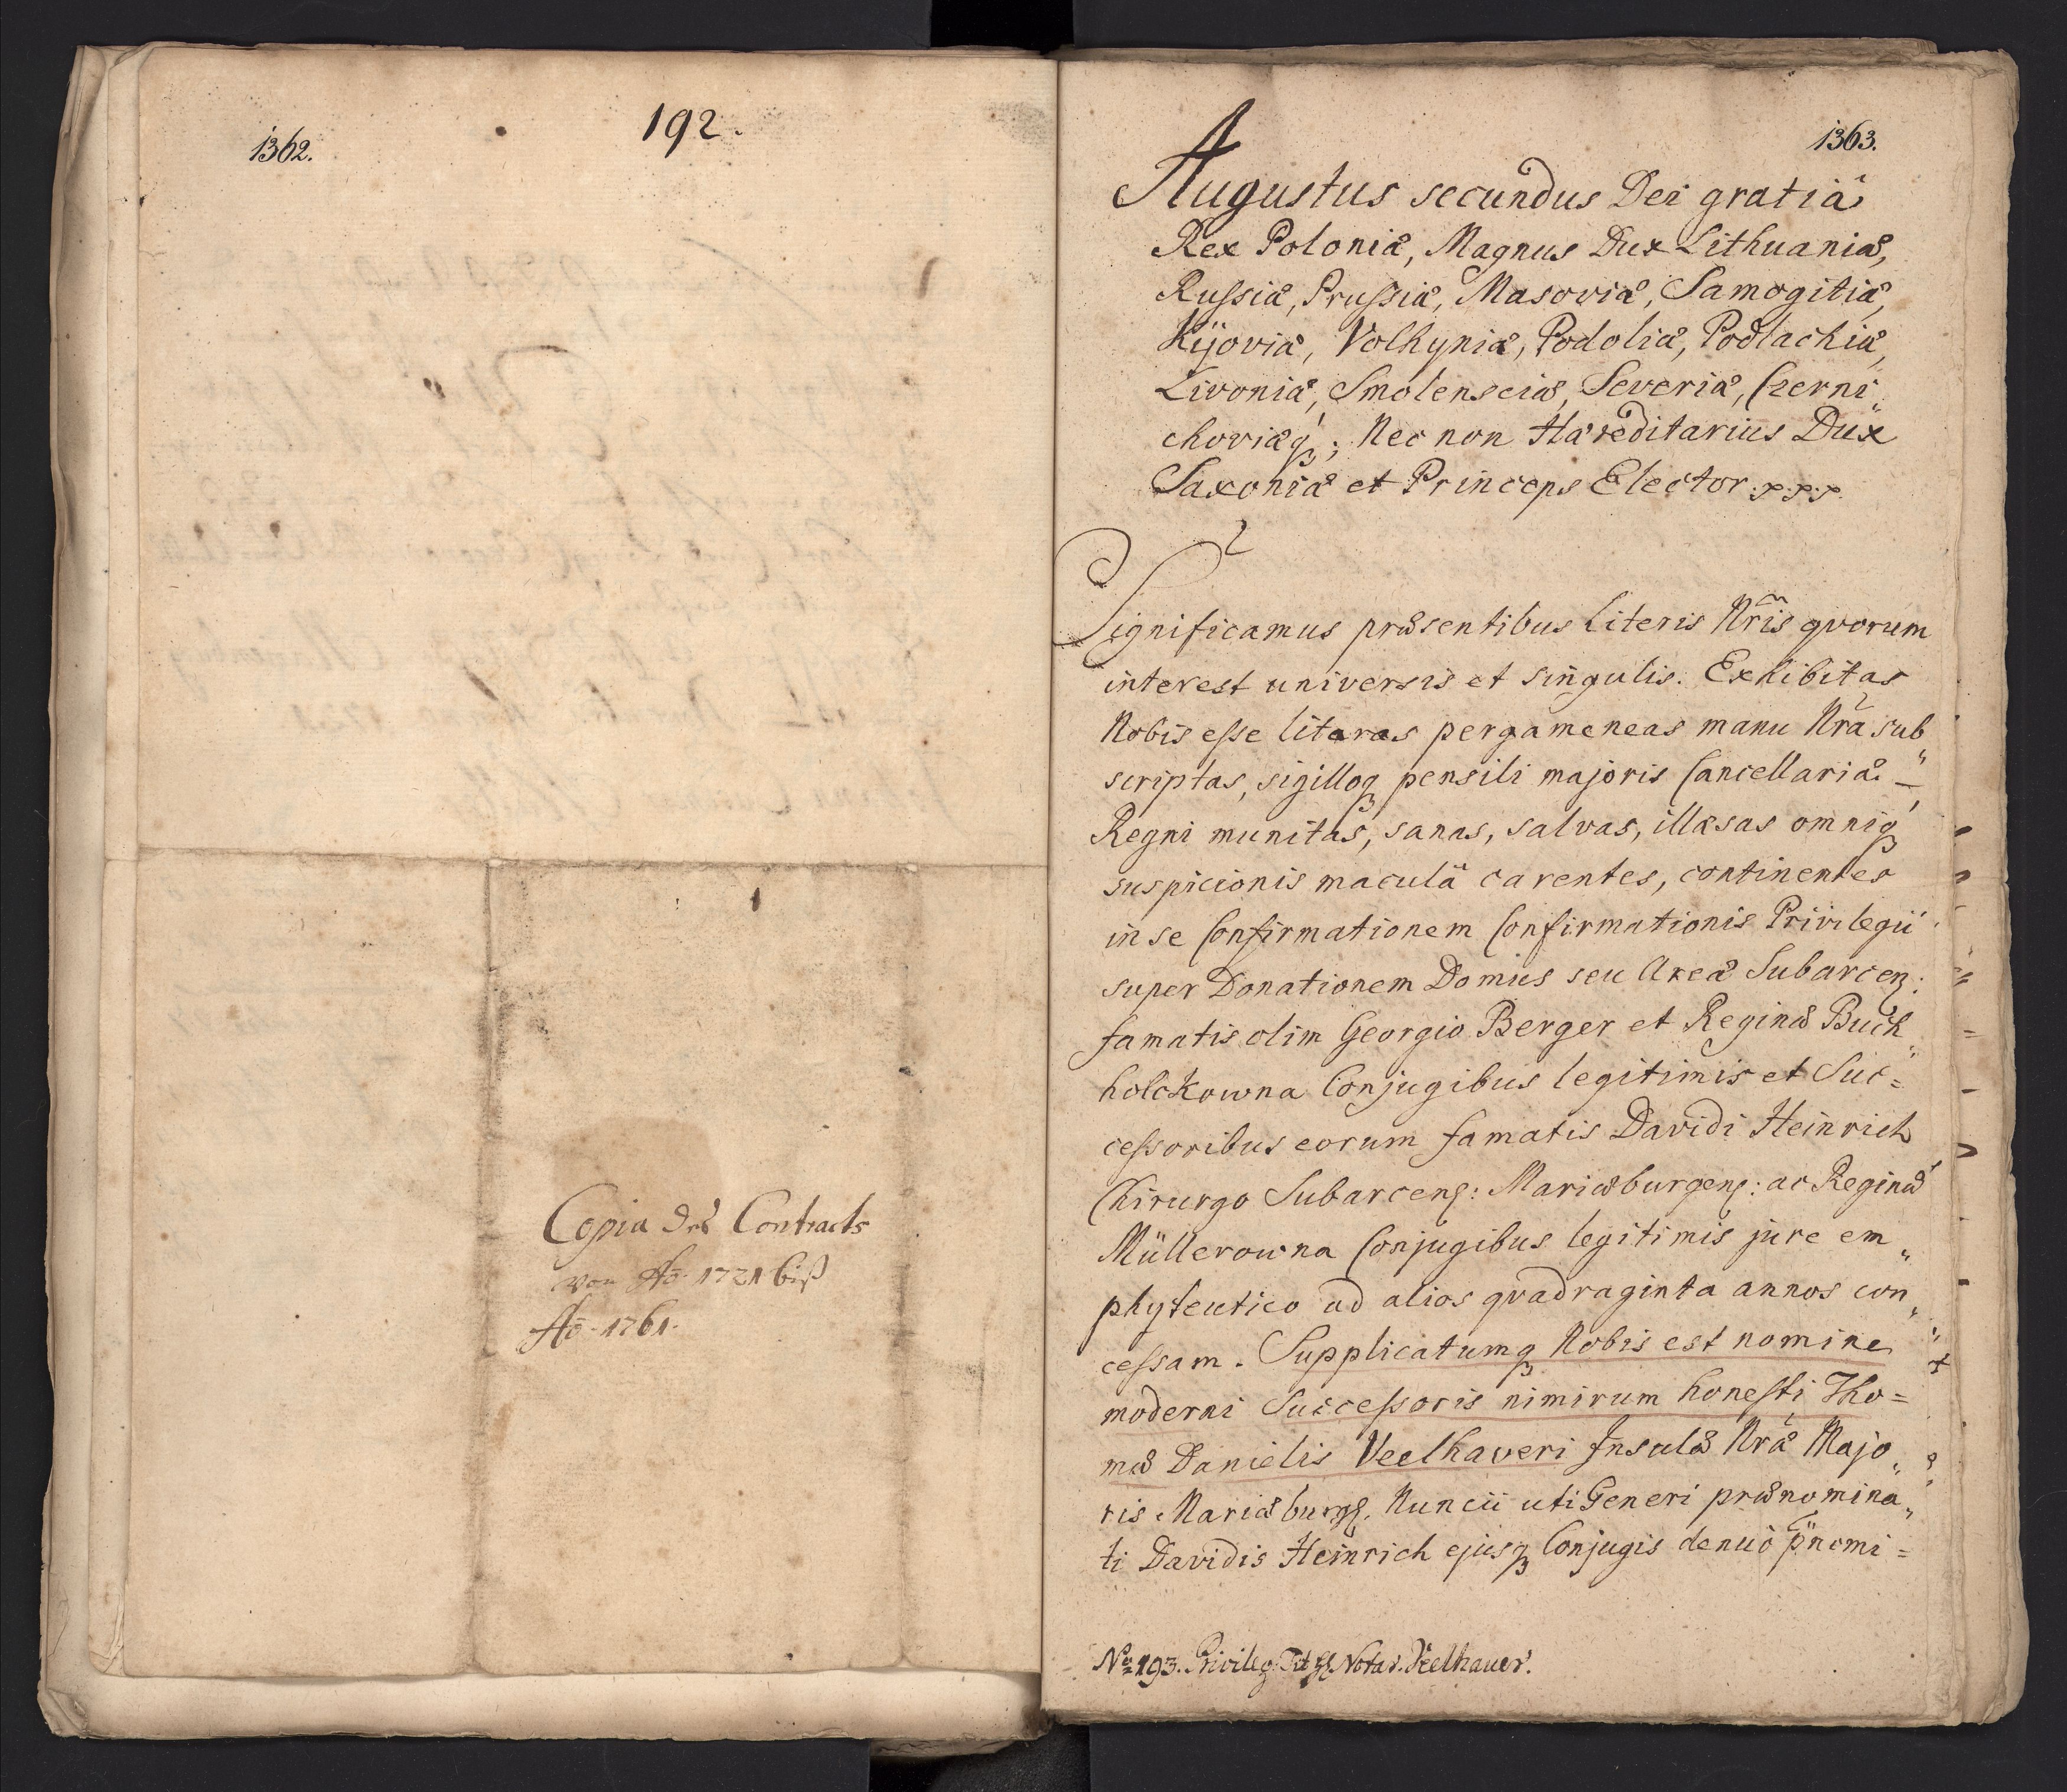 1362.
192.
Copia des Contracts
von Aō. 1721 biß
Aō. 1761.
1363.
Augustus secundus Dei gratiâ
Rex Poloniæ, Magnus Dux Lithuaniæ,
Rußiæ, Prußiæ, Masoviæ, Samogitiæ,
Kijoviæ, Volhyniæ, Podoliæ, Podlachiæ,
Livoniæ, Smolensciæ, Severiæ, Czerni„
choviæq́ꝫ; Nec non Hæreditarius Dux
Saxoniæ et Princeps Elector
Significamus præsentibus Literis Nr̃is qvorum
interest universis et singulis. Exhibitas
Nobis eße literas pergameneas manu Nrã sub„
scriptas, sigilloqꝫ pensili majoris Cancellariæ –
Regni munitas, sanas, salvas, illæsas omniqꝫ
suspicionis maculâ carentes, continentes
in se Confirmationem Confirmationis Privilegii
super Donationem Domus seu Areæ Subarcen:
famatis olim Georgio Berger et Reginæ Buch„
holckowna Conjugibus legitimis et Suc=
ceßoribus eorum famatis Davidi Heinrich
Chirurgo Subarcens: Mariæburgens: ac Reginæ
Müllerowna Conjugibus legitimis jure em„
phyteutico ad alios qvadraginta annos con„
ceßam. Supplicatumqꝫ Nobis est nomine
moderni Succeßoris nimirum honesti Tho=
mæ Danielis Veelhaveri Insulæ Nræ Majo„
ris Mariæburgs. Nuncii uti Generi prænomina„
ti Davidis Heinrich ejusqꝫ Conjugis denuò p̃nomi=
No 193. Privileg. Notar. Veelhauer.